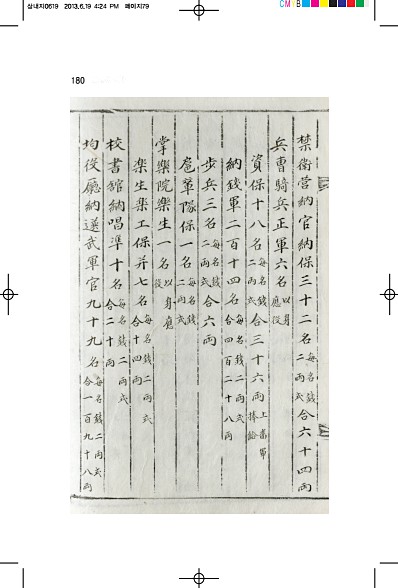 삼내지0619 2013.6.19 4:24 PM 페이지79
CMYB
180
禁衛營納官納保三十二名每名錢二兩式合六十四兩
兵曹騎兵正軍六名以身應役
資保十八名每名錢二兩式合三十六兩上當軍捧給
納錢軍二百十四名每名錢二兩式合四百二十八兩
步兵三名每名錢二兩式合六兩
扈輦隊保一名每名錢二兩式
掌樂院樂生一名以身應役
樂生樂工保幷七名每名錢二兩式合十四兩
校書館納唱準十名每名錢二兩式合二十兩
均役廳納選武軍官九十九名每名錢二兩式合一百九十八兩